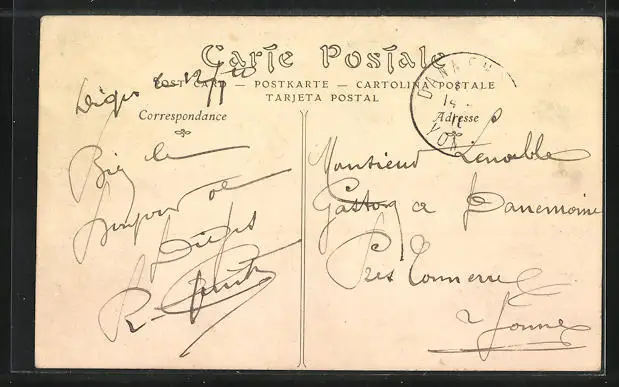 Carte Postale
POST CARD — POSTKARTE — CARTOLINA POSTALE
TARJETA POSTAL
Correspondance
Adresse
Bien le
Bonjour de
Diges
R.
Monsieur Lenoble
Gaston a Dannemoine
Pres Tonnerre
Yonne